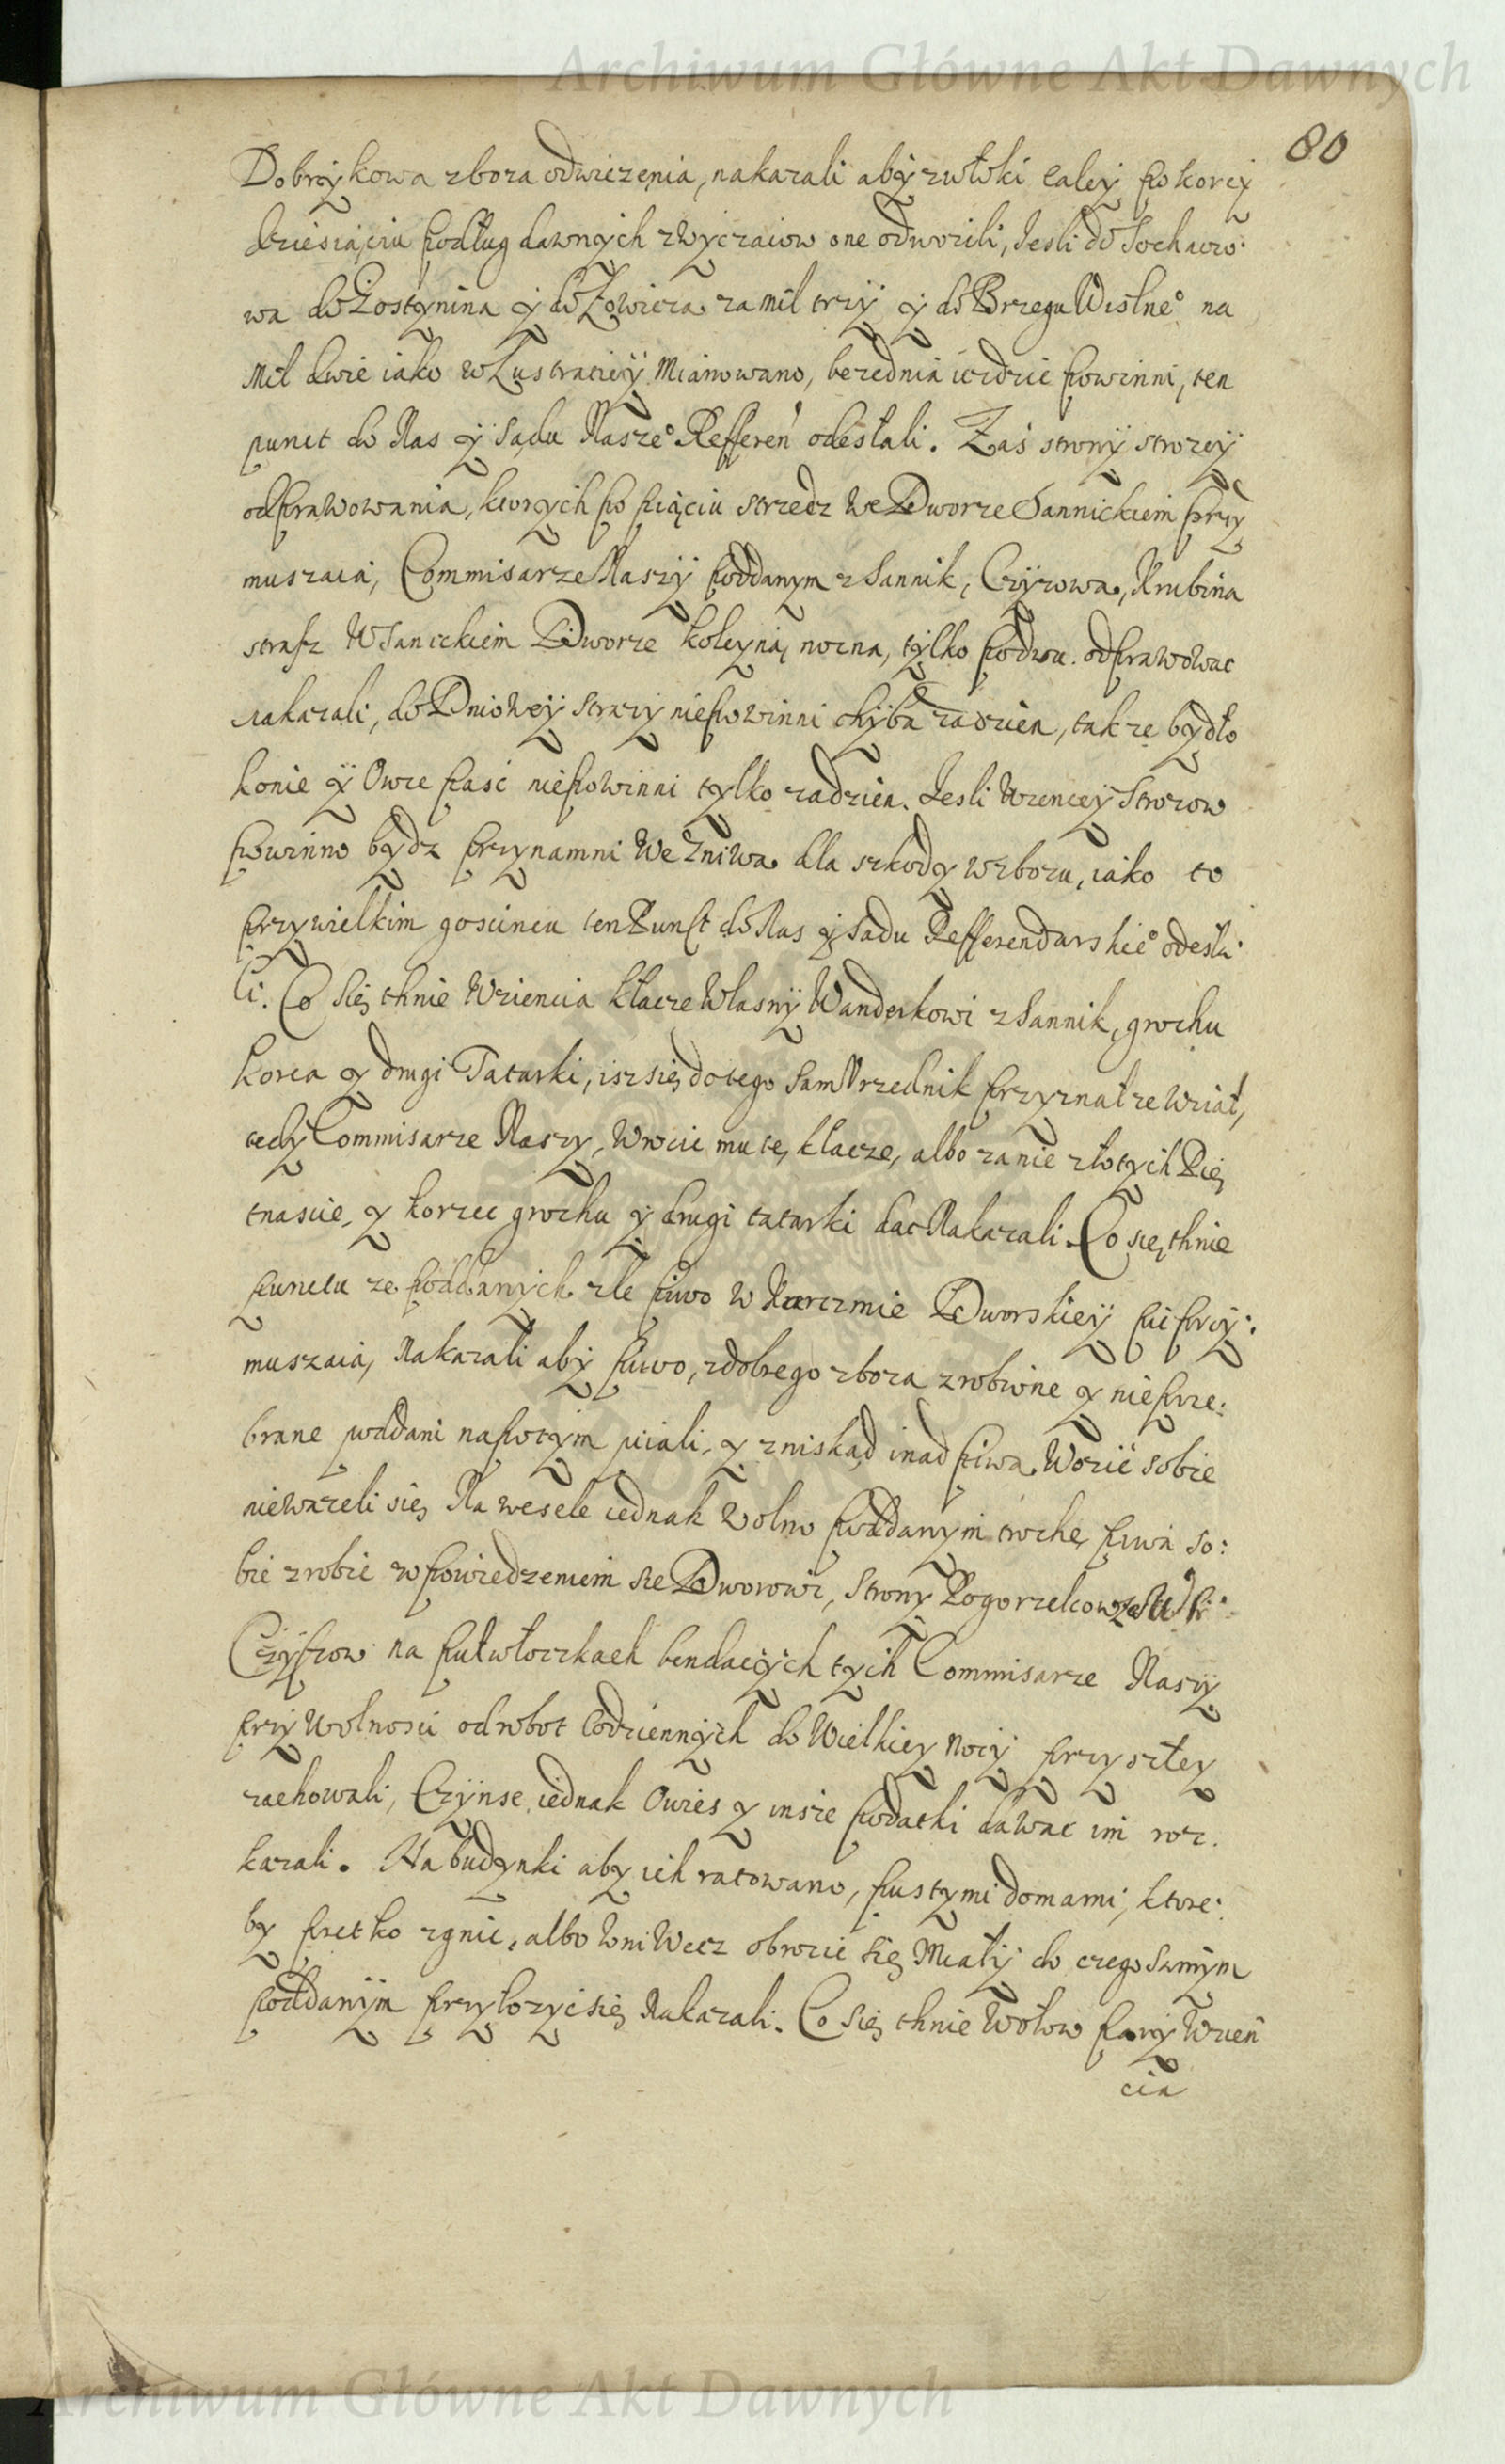 Archiwum Główne Akt Dawnych
80
Dobrzykowa zboza odwiezenia, nakazali aby zwłoki całey po korcy
dziesiąciu podług dawnych zwyczaiow one odwozili, Jesli do Sochaczo:
wa do Gostynina y do Łowicza za mil trzy y do Brzegu Wislne° na
Mil dwie iako w Lustraciey Mianowano, bezednia iezdzic powinni, ten
punct do Nas y Sądu Nasze° Refferen odesłali. Zaś strony strozey
odprawowania, ktorych po piąciu strzedz we Dworze Sannickiem przy
muszaią, Commisarze Naszy poddanym z Sannik, Czyzowa, Krubina
strasz W Sanickiem Dworze koleyną nocną, tylko podwu. odprawowac
nakazali, do Dniowey strazy niepowinni chyba zadzien, takze bydło
konie y Owce paść niepowinni tylko zadzien. Jesli Wiencey Strozow
powinno bydz przynamni We Zniwa dla szkody wzbozu, iako to
przywielkim goscincu ten Punkt do Nas y Sadu Refferendarskie° odesła:
li. Co Się tknie Wziencia kłacze Własny Wanderkowi z Sannik, grochu
korca y drugi Tatarki, isz się do tego Sam Vrzednik przyznał ze wziął,
tedy Commisarze Naszy, Wrocic mu tę kłacze, albo zanie złotych Pię
tnascie, y korzec grochu y drugi tatarki dac Nakazali. Co się tknie
punctu ze poddanych złe piwo w Karczmie Dworskiey pic przy:
muszaią, Nakazali aby piwo, zdobrego zboza zrobione y nieprze:
brane poddani napotym piiali, y zniskąd inad piwa Wozić sobie
niewazeli się, Na wesele iednak Wolno poddanym troche piwa so:
bie zrobic w powiedzeniem sie Dworowi, Strony Pogorzelcow
na pułwłoczkach bendacych tych Commisarze Naszy
przy Wolnosci od robot Codziennych do Wielkiey Nocy przyszłey
zachowali, Czynsz iednak Owies y insze podatki dawac im roz.
kazali. Na budynki aby ich ratowano, pustymi domami, ktore:
by prętko zgnic, albo wniwecz obrocic się Miały do czego Samym
poddanym przyłozyc się Nakazali. Co się tknie Wołow pary Wzien
cia
Archiwum Główne Akt Dawnych